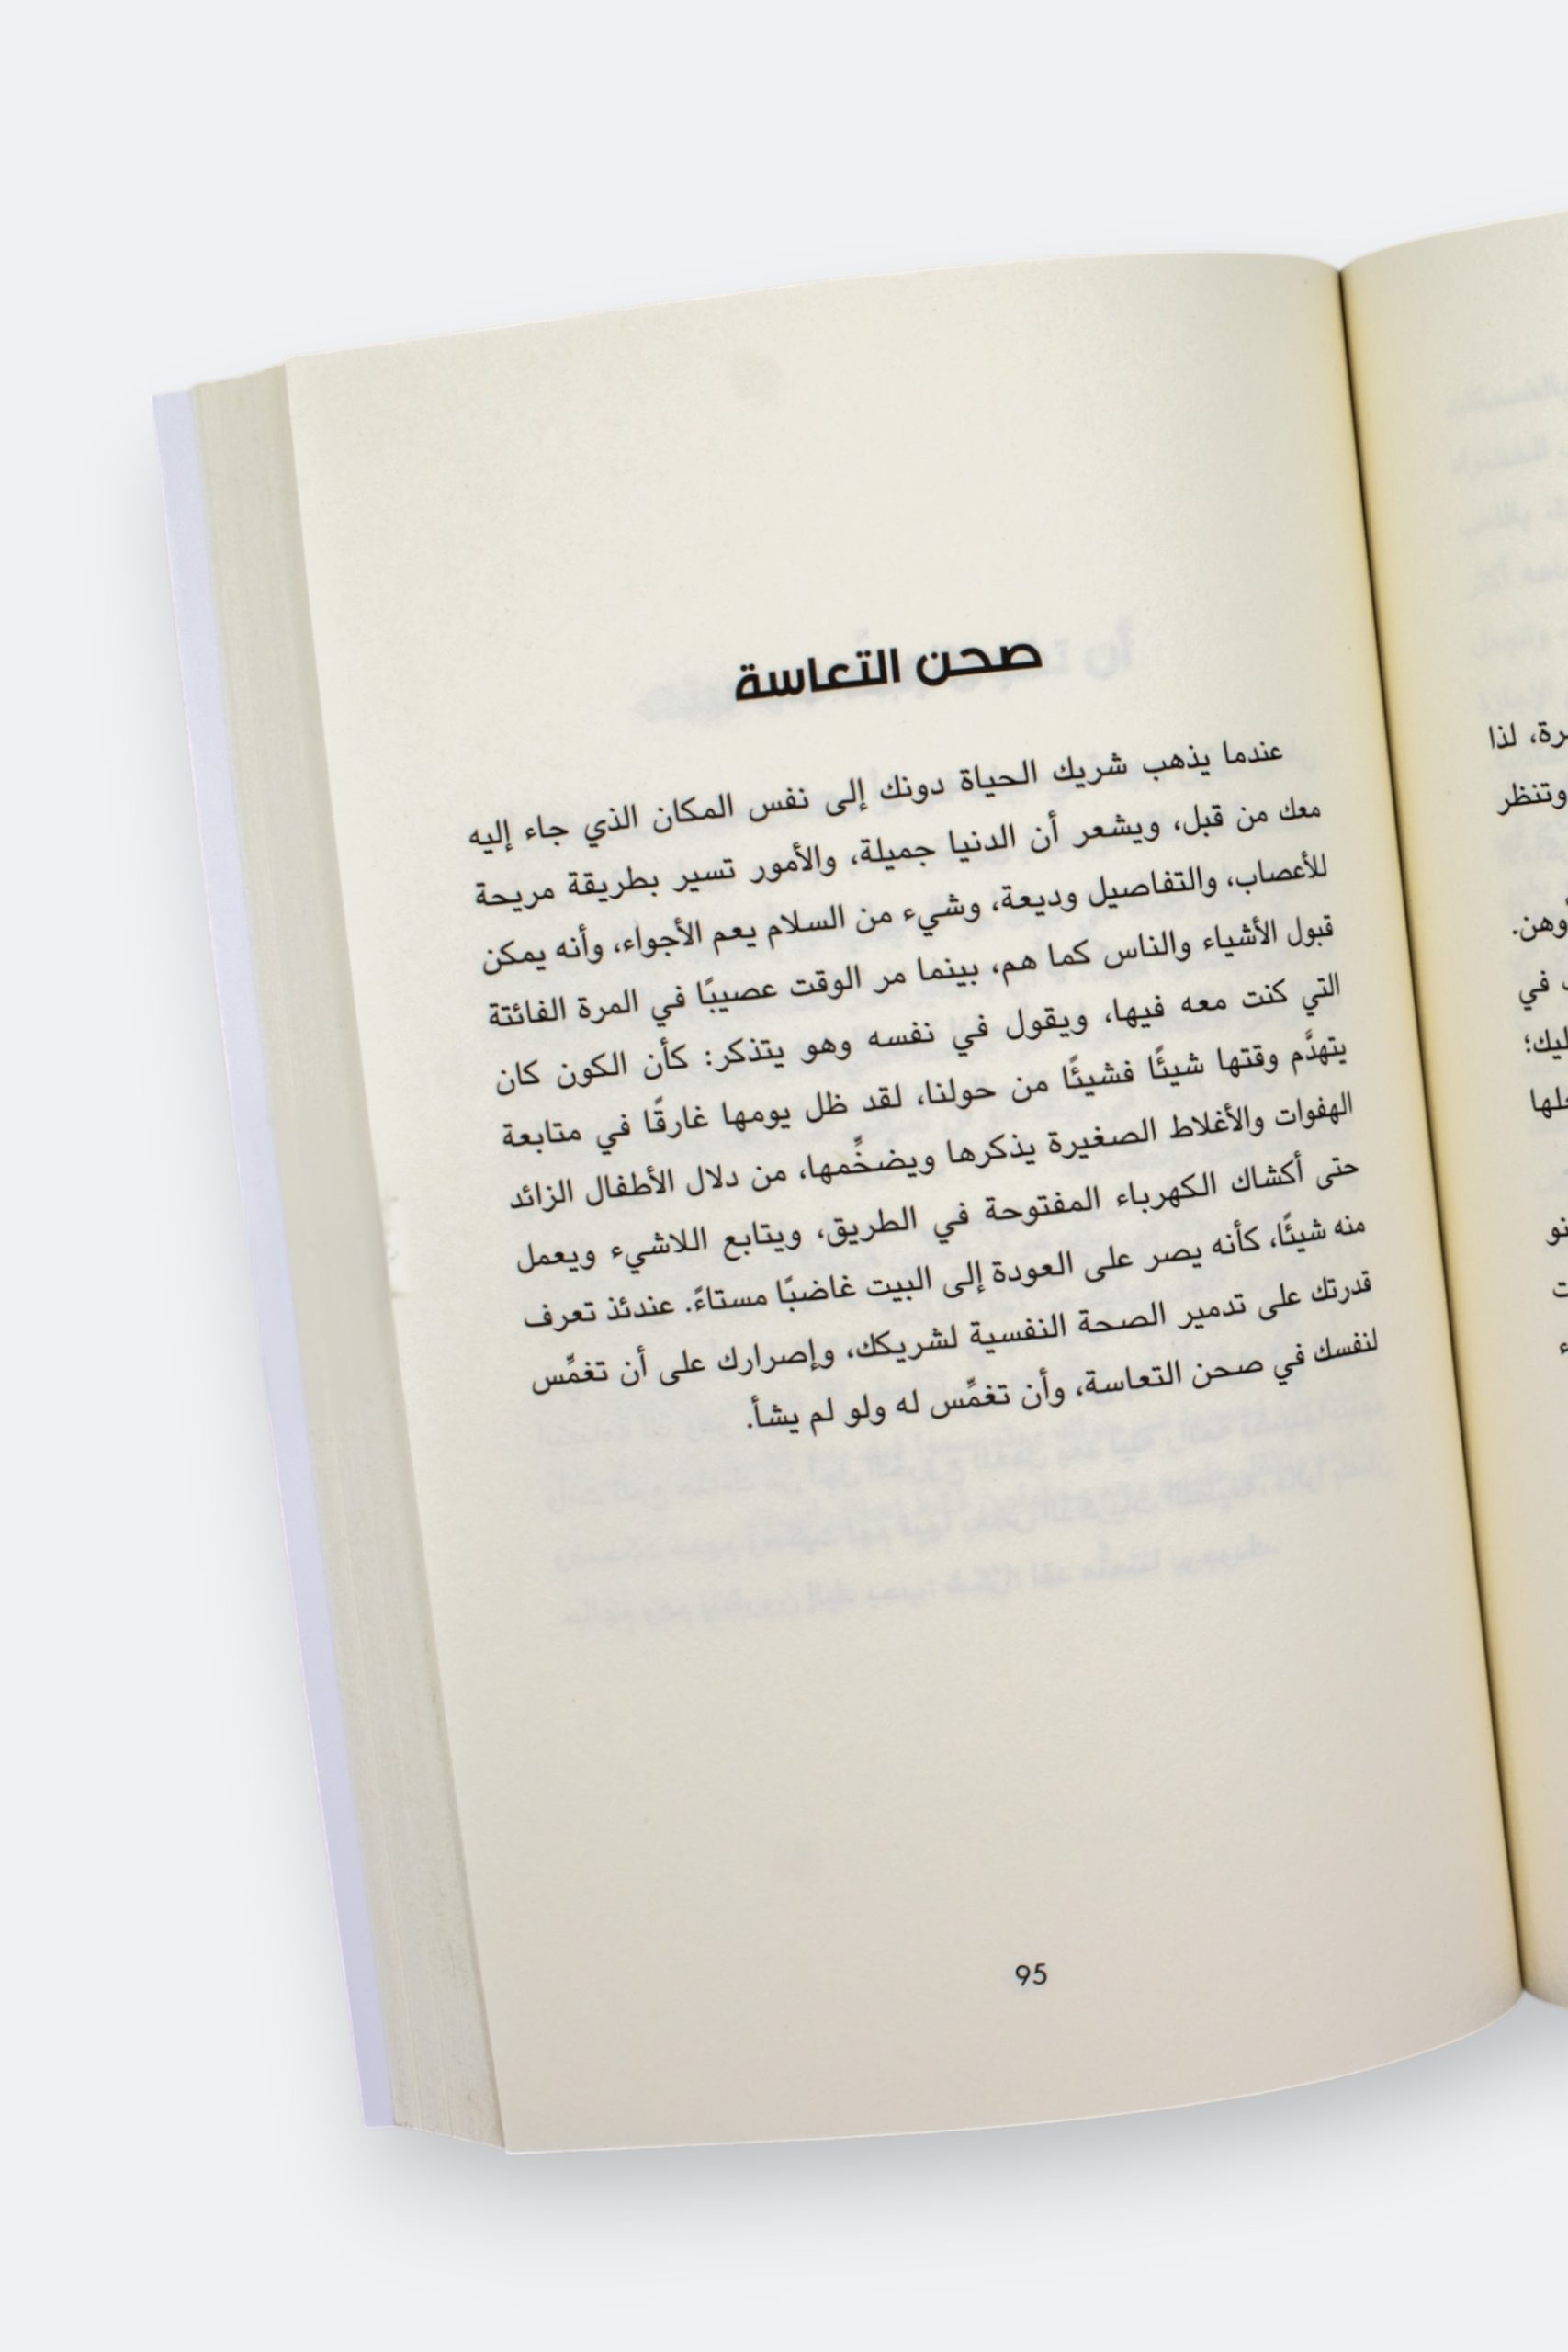 صحن التعاسة
عندما يذهب شريك الحياة دونك إلى نفس المكان الذي جاء إليه
معك من قبل، ويشعر أن الدنيا جميلة، والأمور تسير بطريقة مريحة
للأعصاب، والتفاصيل وديعة، وشيء من السلام يعم الأجواء، وأنه يمكن
قبول الأشياء والناس كما هم، بينما مر الوقت عصيبًا في المرة الفائتة
التي كنت معه فيها، ويقول في نفسه وهو يتذكر: كأن الكون كان
يتهدَّم وقتها شيئًا فشيئًا من حولنا، لقد ظل يومها غارقًا في متابعة
الهفوات والأغلاط الصغيرة يذكرها ويضخِّمها، من دلال الأطفال الزائد
حتى أكشاك الكهرباء المفتوحة في الطريق، ويتابع اللاشيء ويعمل
منه شيئًا، كأنه يصر على العودة إلى البيت غاضبًا مستاءً. عندئذ تعرف
قدرتك على تدمير الصحة النفسية لشريكك، وإصرارك على أن تغمِّس
لنفسك في صحن التعاسة، وأن تغمِّس له ولو لم يشأ.
95
لذا
وتنظر
في